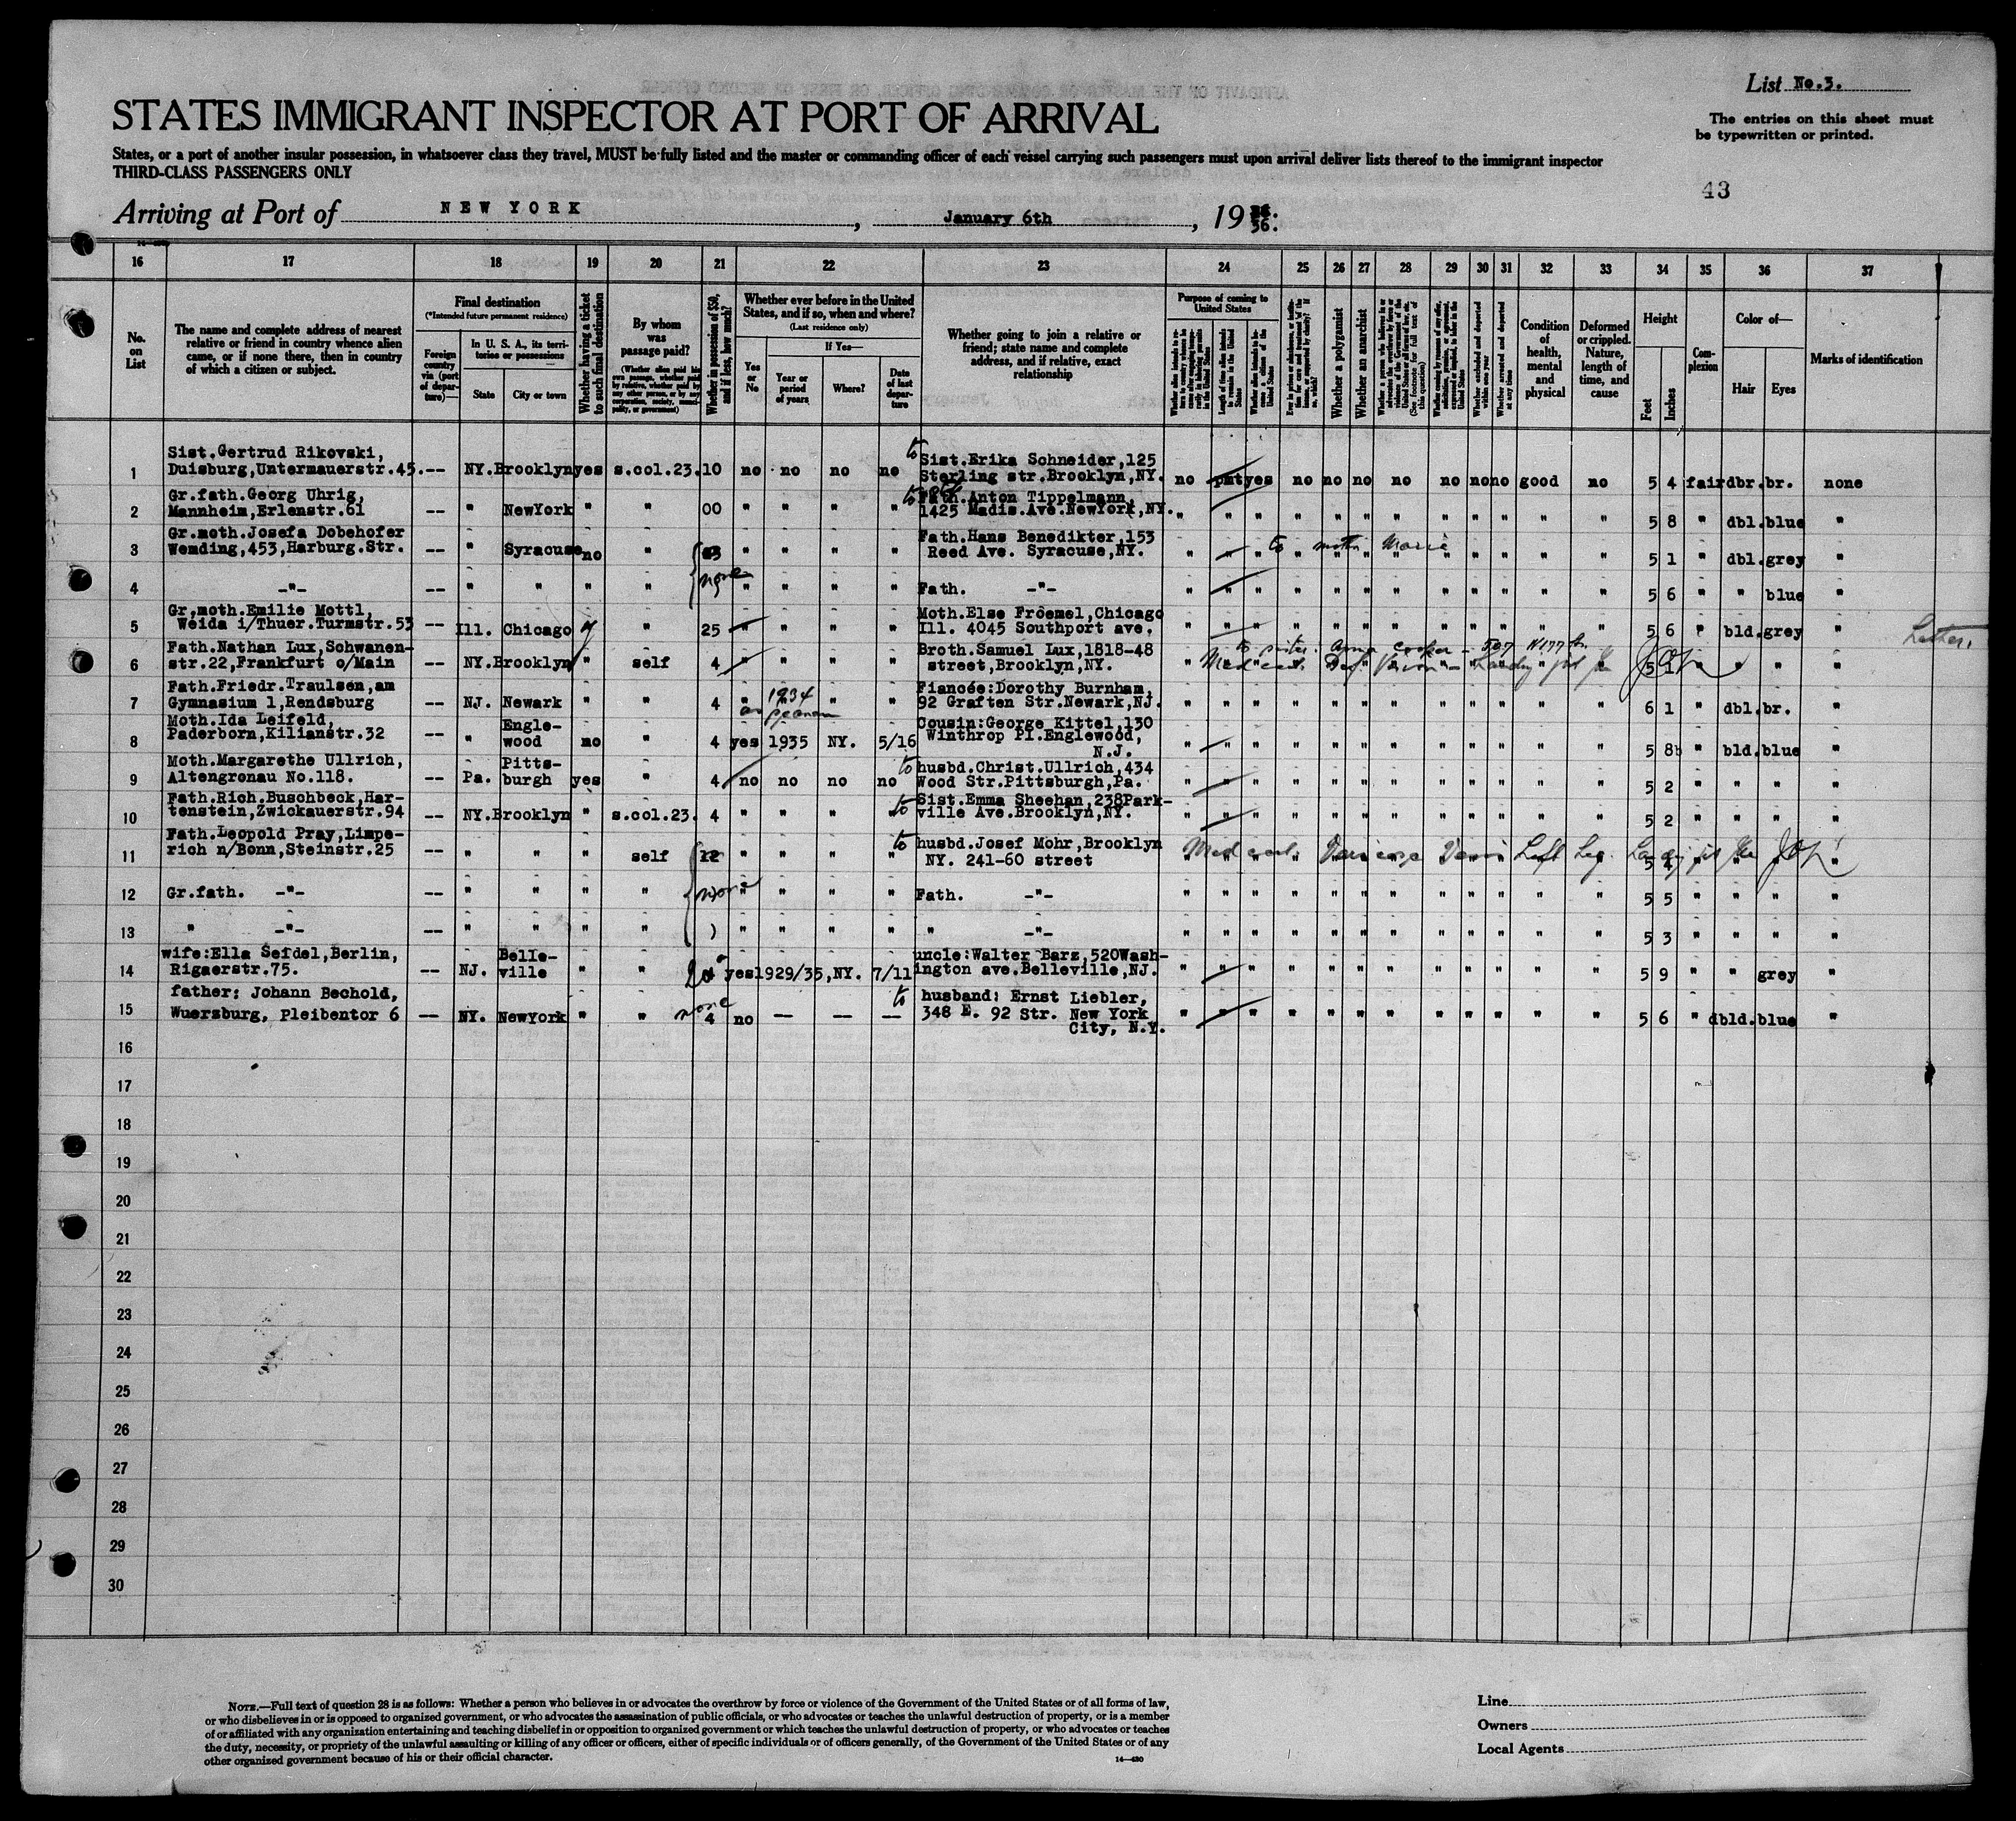 List No.3.
STATES IMMIGRANT INSPECTOR AT PORT OF ARRIVAL
The entries on this sheet must
be typewritten or printed.
States, or a port of another insular possession, in whatsoever class they travel, MUST be fully listed and the master or commanding officer of each vessel carrying such passengers must upon arrival deliver lists thereof to the immigrant inspector
THIRD-CLASS PASSENGERS ONLY
43
Arriving at Port of NEW YORK, January 6th, 19 36.
16 17 18 19 20 21 22 23 24 25 26 27 28 29 30 31 32 33 34 35 36 37
No. on List
The name and complete address of nearest relative or friend in country whence alien came, or if none there, then in country of which a citizen or subject.
Final destination
(*Intended future permanent residence)
Foreign country via (port of departure)—
In U. S. A., its territories or possessions
State
City or town
Whether having a ticket to such final destination
By whom was passage paid?
(Whether alien paid his own passage, whether paid by relative, whether paid by any other person, or by any corporation, society, municipality, or government)
Whether in possession of $50, and if less, how much?
Whether ever before in the United States, and if so, when and where?
(Last residence only)
Yes or No
If Yes—
Year or period of years
Where?
Date of last departure
Whether going to join a relative or friend; state name and complete address, and if relative, exact relationship
Purpose of coming to United States
Length of time alien intends to remain in the United States
Whether a polygamist
Whether an anarchist
Whether excluded and deported within one year
Whether arrested and deported at any time
Condition of health, mental and physical
Deformed or crippled. Nature, length of time, and cause
Height
Feet
Inches
Complexion
Color of—
Hair
Eyes
Marks of identification
1 Sist.Gertrud Rikovski, to Sist.Erika Schneider,125
Duisburg,Untermauerstr.45.-- NY.Brooklyn yes s.col.23. 10 no no no no Sterling str.Brooklyn,NY. no pmt yes no no no no no no no good no 5 4 fair dbr. br. none
2 Gr.fath.Georg Uhrig, to Fath.Anton Tippelmann,
Mannheim,Erlenstr.61 -- " NewYork " " 00 " " " " 1425 Madis.Ave.NewYork,NY. " " " " " " " " " " " 5 8 " dbl. blue "
3 Gr.moth.Josefa Dobehofer Fath.Hans Benedikter,153
Wemding,453,Harburg.Str. -- " Syracuse no " " " " " Reed Ave. Syracuse,NY. " " to moth. Marie " " " " 5 1 " dbl. grey "
4 -"- -- " " " " none " " " " Fath. -"- " " " " " " " " " " " 5 6 " " blue "
5 Gr,moth.Emilie Mottl, Moth.Else Froemel,Chicago
Weida i/Thuer.Turmstr.53 -- Ill. Chicago " 25 " " " Ill. 4045 Southport ave. " " " " " " " " " " 5 6 " bld. grey "
6 Fath.Nathan Lux,Schwanen- Broth.Samuel Lux,1818-48
str.22,Frankfurt o/Main -- NY.Brooklyn " self 4 " " " street,Brooklyn,NY. " Med cert. Def. Vision " "
7 Fath.Friedr.Traulsen,am 1934 Fiancée:Dorothy Burnham,
Gymnasium 1,Rendsburg -- NJ. Newark " " 4 " " " 92 Graften Str.Newark,NJ. " " " " " " " " " " " 6 1 " dbl. br. "
8 Moth.Ida Leifeld, Engle- Cousin:George Kittel,130
Paderborn,Kilianstr.32 -- " wood no " 4 yes 1935 NY. 5/16 Winthrop Pl.Englewood,
N.J. " " " " " " " " " " " 5 8 " bld. blue "
9 Moth.Margarethe Ullrich, Pitts- to husbd.Christ.Ullrich,434
Altengronau No.118. -- Pa. burgh yes " 4 no no no no Wood Str.Pittsburgh,Pa. " " " " " " " " " " " 5 2 " " " "
10 Fath.Rich.Buschbeck,Har- to Sist.Emma Sheehan,238Park-
tenstein,Zwickauerstr.94 -- NY.Brooklyn " s.col.23. 4 " " " ville Ave.Brooklyn,NY. " " " " " " " " " " " 5 2 " " " "
11 Fath.Leopold Pray,Limpe- to husbd.Josef Mohr,Brooklyn
rich n/Bonn,Steinstr.25 -- " " " self 12 " " " " NY. 241-60 street Med cert. Varicose Veins Left Leg. 5 4
12 Gr.fath. -"- -- " " " " none " " " " Fath. -"- " " " " " " " " " " " 5 5 " " " "
13 " -"- -- " " " " " " " " " -"- " " " " " " " " " " " 5 3 " " " "
14 wife:Ella Seidel,Berlin, Belle- uncle:Walter Barz,520Wash-
Rigaerstr.75. -- NJ. ville " " 20 yes 1929/35,NY. 7/11 ington ave.Belleville,NJ. " " " " " " " " " " " 5 9 " " grey "
15 father: Johann Bechold, none to husband: Ernst Liebler,
Wuerzburg, Pleibentor 6 -- NY. NewYork " " 4 no — — — 348 E. 92 Str. New York
City, N.Y. " " " " " " " " " " " 5 6 " dbld. blue "
16
17
18
19
20
21
22
23
24
25
26
27
28
29
30
NOTE.—Full text of question 28 is as follows: Whether a person who believes in or advocates the overthrow by force or violence of the Government of the United States or of all forms of law,
or who disbelieves in or is opposed to organized government, or who advocates the assassination of public officials, or who advocates or teaches the unlawful destruction of property, or is a member
of or affiliated with any organization entertaining and teaching disbelief in or opposition to organized government or which teaches the unlawful destruction of property, or who advocates or teaches
the duty, necessity, or propriety of the unlawful assaulting or killing of any officer or officers, either of specific individuals or of officers generally, of the Government of the United States or of any
other organized government because of his or their official character.
14—430
Line
Owners
Local Agents